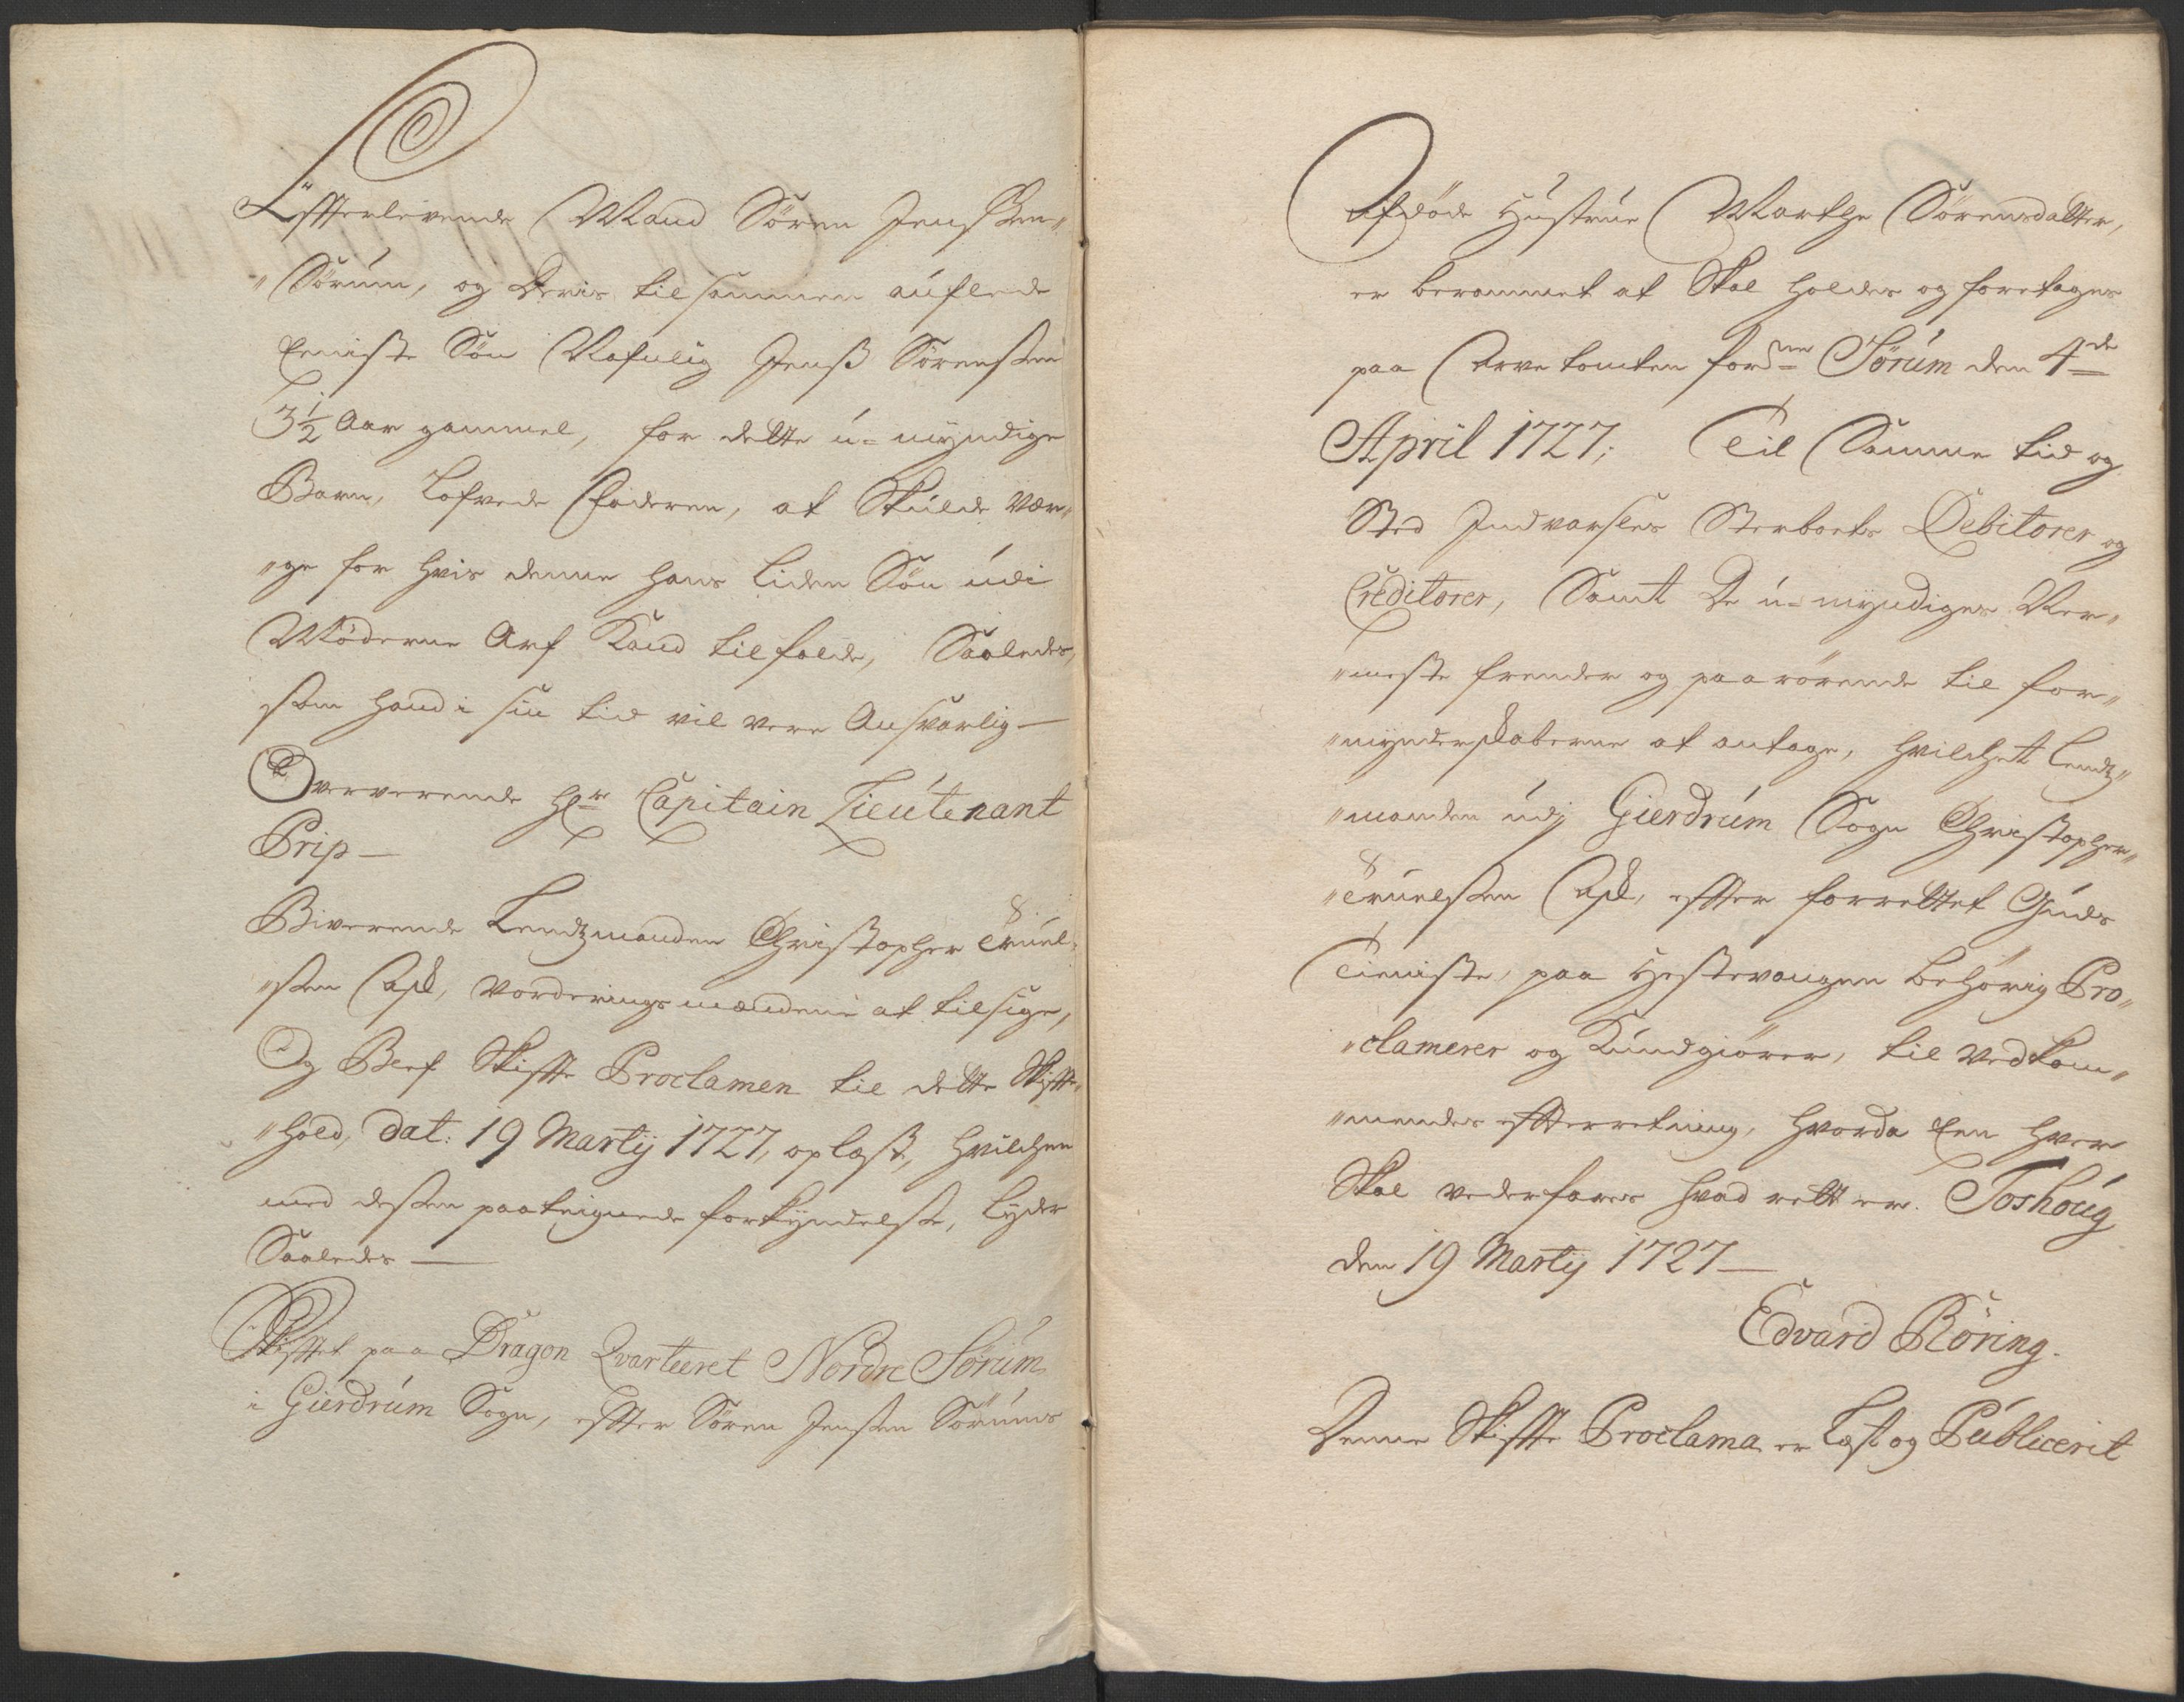 Effterlevende Mand Sören Jenssen„
„Sörúm, og Deris tilsammen auflede
Eeniste Sön Nafnlig Jenß Sörenssen
3½ Aar gammel, for dette ú=myndige
Barn, Lofvede Faderen, at Skulde Vær„
„ge for hvis denne hans liden Sön údi
Möderne Arf Kand tilfalde, Saaledes,
som hand i sin tid vil vere Ansvarlig—
Oververende Hr Capitain Lieútenant
Prip—
Biverende Lendzmanden Christopher Trúel„
„sen Ask, Vorderingsmændene at tilsige,
Og Blef Skiffte Proclamen til dette Skiffte„
„hold, dat: 19 Martij 1727, oplæst, hvilchen
med dessen paateignede forkyndelse, lyder
Saaledes—
Skifftet paa Dragon Qvarteeret Nordre Sörúm
i Gierdrúm Sogn, effter Sören Jenssen Sörúms
Afdöde Hústrúe Marthe Sörensdatter,
er berammet at Skal holdes og foretages
paa Arvetomten fordne Sörúm den 4de
April 1727; Til Samme tid og
Sted Indvarsles Sterboets Debitorer og
Creditorer, Samt De ú=myndiges Ner„
„meste frender og paarörende til for„
„mynderskaberne at antage, hvilchet Lendz„
„manden údj Gierdrúm Sogn Christopher„
„Trúelssen Ask, effter forrettet Gúds
Tieniste, paa Hestevangen behörig Pro„
„clamerer og Kúndgiörer, til Vedkom„
„mendes effterretning, hvorda Een hver
Skal vederfares hvad rett er. Toshoúg
den 19 Martij 1727—
Edvard Röring.
Denne Skiffte Proclama er Læst og Públicerit